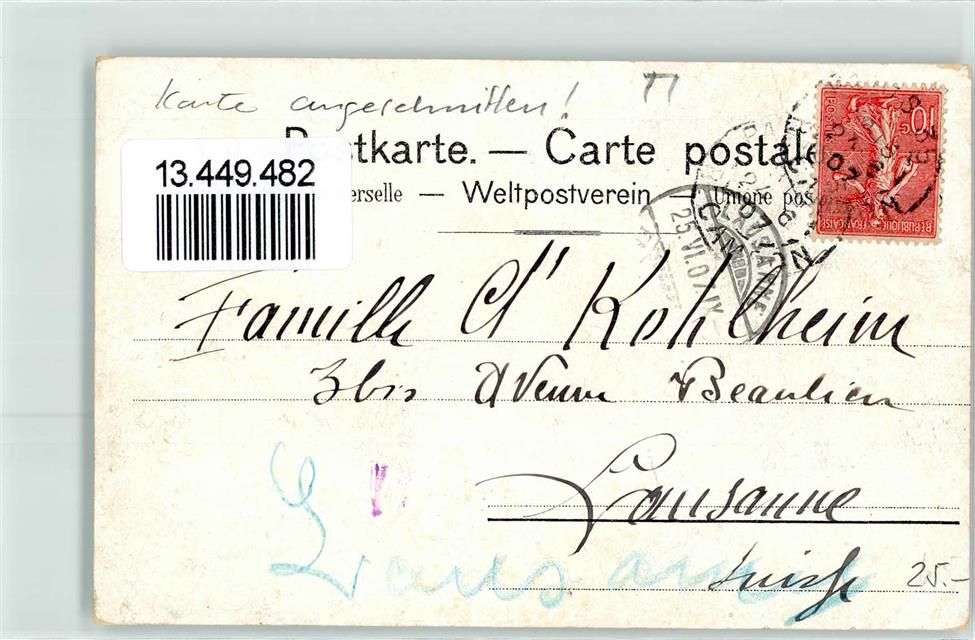 Karte angeschnitten!
13.449.482
Postkarte. — Carte postale
erselle — Weltpostverein — Unione pos
REPUBLIQUE FRANÇAISE
POSTES
10 c
LAUSANNE
25.VI.07.IX
Famille Ct Kohlheim
3 bis Avenue Beaulieu
Lausanne
Suisse
Lausanne
25.-